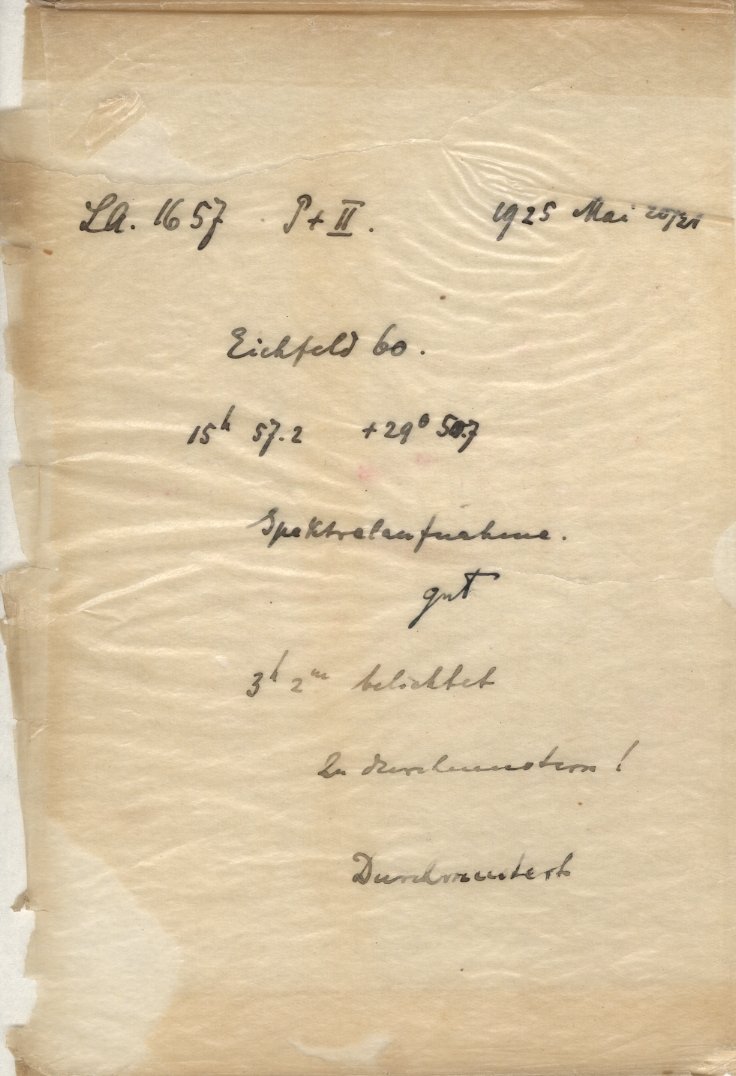 LA. 1657 P+II. 1925 Mai 20/21
Eichfeld 60.
15h 57.2 +29° 50.7
Spektralaufnahme.
gut
3h 2m belichtet
Zu durchmustern!
Durchmustert